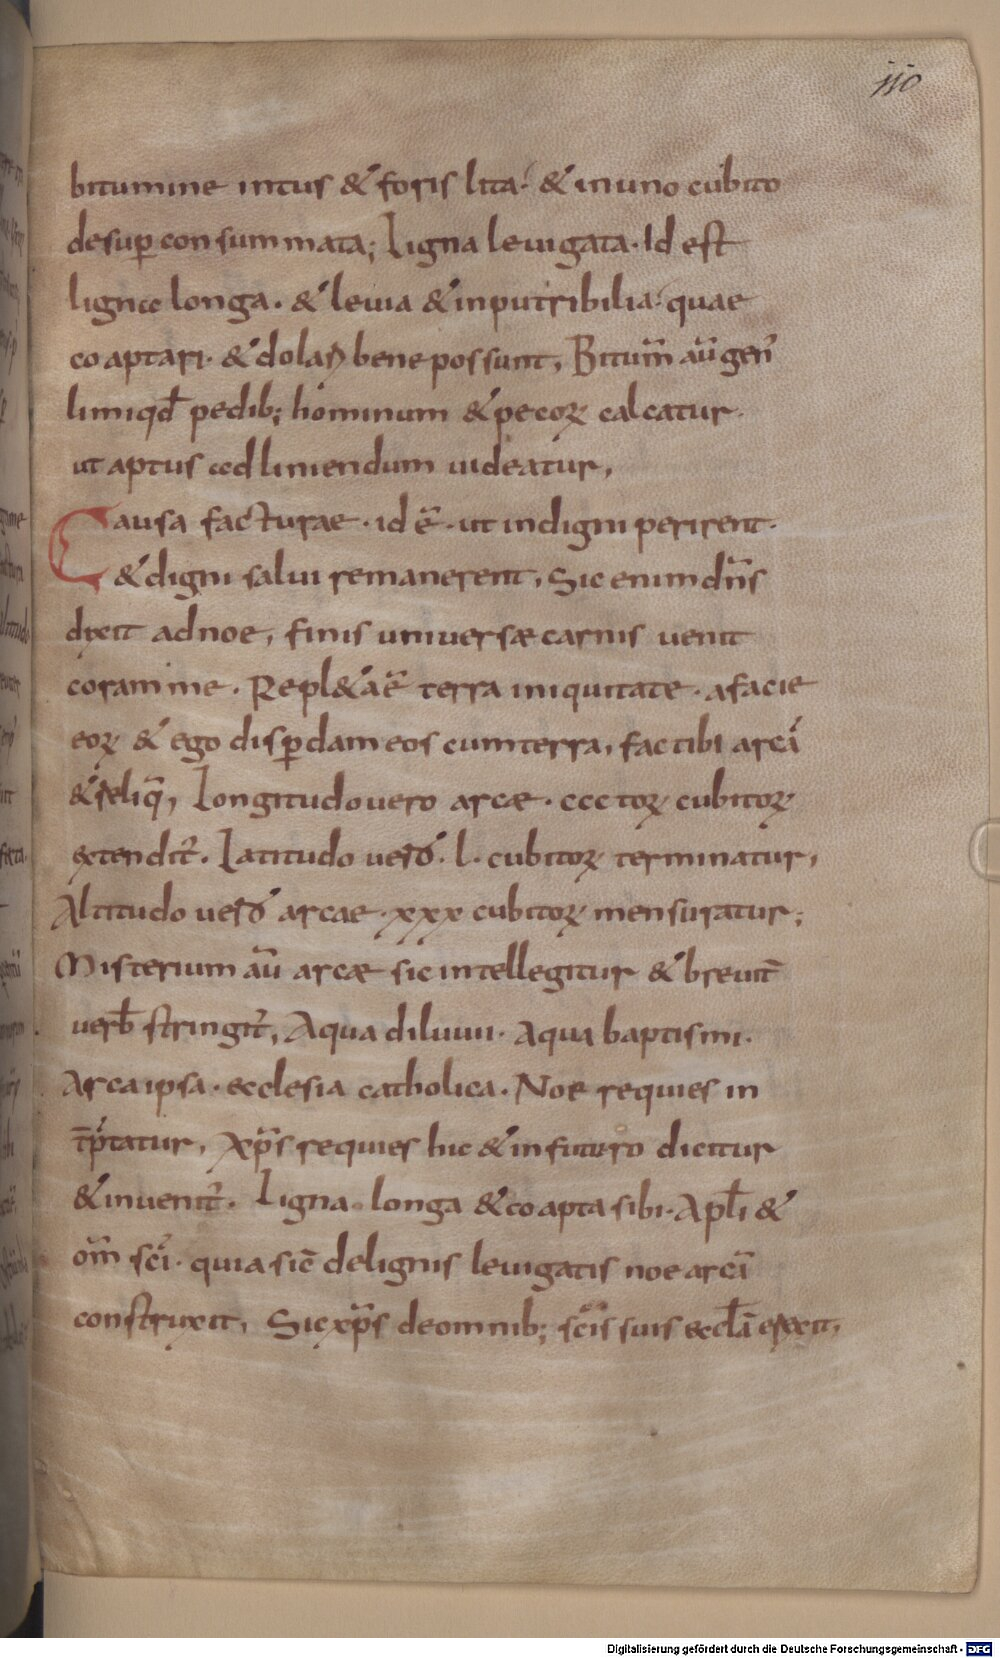 110
bitumine intus & foris lita· & in uno cubito
desup̄ consummata; Ligna leuigata· Id est
ligna longa· & leuia & inputribilia· quae
coaptari· & dolari bene possunt, Bitum̄ aū gen̄
limi qđ pedib; hominum & pecoꝝ calcatur·
ut aptus ad liniendum uideatur,
Causa facturae· id ē· ut indigni perirent·
& digni salui remanerent, Sic enim dn̄s
dixit ad noe, finis uniuersæ carnis uenit
coram me· Repl&a ē terra iniquitate· a facie
eoꝝ & ego disꝑdam eos cum terra, fac tibi arcā
& reliq̄, Longitudo uero arcæ· ccctoꝝ cubitoꝝ
extendit̄· Latitudo uero· l· cubitoꝝ terminatur,
Altitudo uero arcae· xxx cubitoꝝ mensuratur;
Misterium aū arcæ sic intellegitur & breuit̄
uerƀ stringit̄, Aqua diluuii· Aqua baptismi·
Arca ipsa· ecclesia catholica· Noe requies in
t̄p̄tatur, Xp̄s requies hic & in futuro dicitur
& inuenit̄· Ligna longa & coapta sibi· Apłi &
om̄ sc̄i· quia sic̄ de lignis leuigatis noe arcā
construxit, Sic xp̄s de omnib; sc̄is suis eccłā erexit,
Digitalisierung gefördert durch die Deutsche Forschungsgemeinschaft - DFG